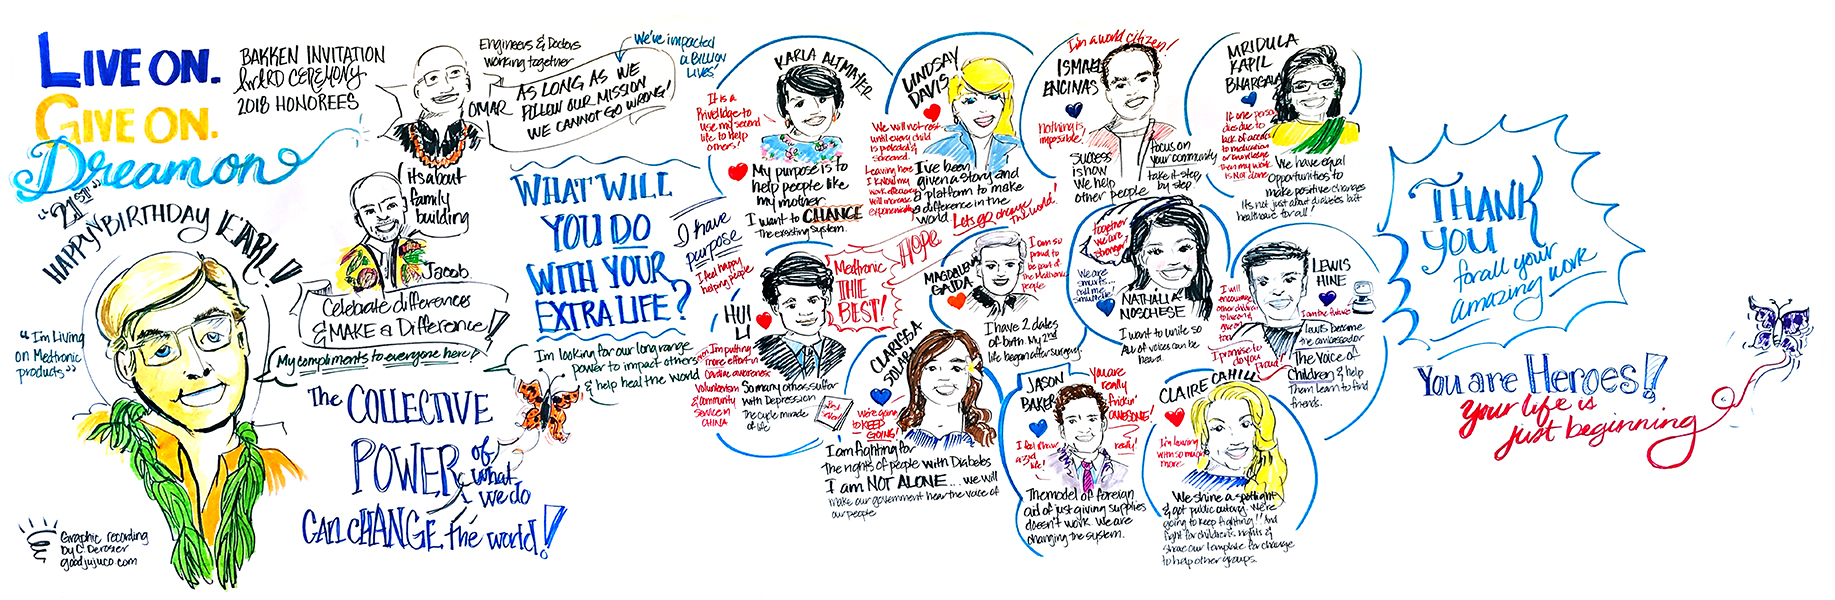 LIVE ON.
GIVE ON.
Dreamon
BAKKEN INVITATION
AWARD CEREMONY
2018 HONOREES
"21ST"
HAPPY BIRTHDAY EARL!!
"I'm Living
on Medtronic
products"
Graphic recording
by C. Derosier
goodjujuco.com
Engineers & Doctors
working together
OMAR
AS LONG AS WE
FOLLOW OUR MISSION
WE CANNOT GO WRONG!
We've impacted
a BILLION
LIVES'
its about
family
building
Jacob.
Celebrate differences
& MAKE a Difference!
My compliments to everyone here!
The COLLECTIVE
POWER of
what
we do
CAN CHANGE the world!
WHAT WILL
YOU DO
WITH YOUR
EXTRA LIFE?
I'm looking for our long range
power to impact others
& help heal the world
I have
purpose
KARLA ALTMAYER
It is a
Priviledge to
use my second
life to help
others!
My purpose is to
help people like
my mother
I want to CHANGE
The existing system.
LINDSAY
DAVIS
We will not rest
until every child
is protected &
screened.
Leaving here
I know my
work efficacy
will increase
exponentially
I've been
given a story and
a platform to make
a difference in the
world.
Lets go change
the world!
ISMAEL
ENCINAS
I'm a world citizen!
Nothing is
impossible!
success
is how
we help
other people
focus on
your community
take it step
by step.
MRIDULA
KAPIL
BHARGALA
If one person
dies due to
lack of access
to medication
or knowledge
then my work
is NOT done
We have equal
Opportunities to
make positive changes
Its not just about diabetes but
healthcare for all!
HUI
LI
I feel happy
helping people
Medtronic
THE
BEST!
HOPE
I'm putting
more effort in
Cardiac awareness
Volunteerism
& community
Service in
CHINA
So many others suffer
with Depression
The cycle miracle
of life
MAGDALENA
GAJDA
I am so
proud to be
part of
the Medtronic
people
I have 2 dates
of birth My 2nd
life began after surgery.
NATHALIA
NOSCHESE
together
we are
stronger
We are
smurfs...
call me
smurfette!
I want to write so
All of voices can be
heard.
LEWIS
HINE
I will
encourage
other children
I am the future
I promise to
do you
proud!
Lewis became
the ambassador
The voice of
Children & help
Them learn to find
friends.
CLARISSA
SOLARI
We're going
to KEEP
GOING!
I am fighting for
The rights of people with Diabetes
I am NOT ALONE... we will
make our government hear the voice of
our people
JASON
BAKER
You are
really
frickin'
AWESOME!
really!
The model of foreign
aid of just giving supplies
doesn't work. We are
changing the system.
CLAIRE CAHILL
I'm leaving
with so much
more
We shine a spotlight
& get public outcry. We're
going to keep fighting!! And
fight for children's rights &
share our template for change
to help other groups.
THANK
YOU
for all your
amazing work
You are Heroes!
Your life is
just beginning